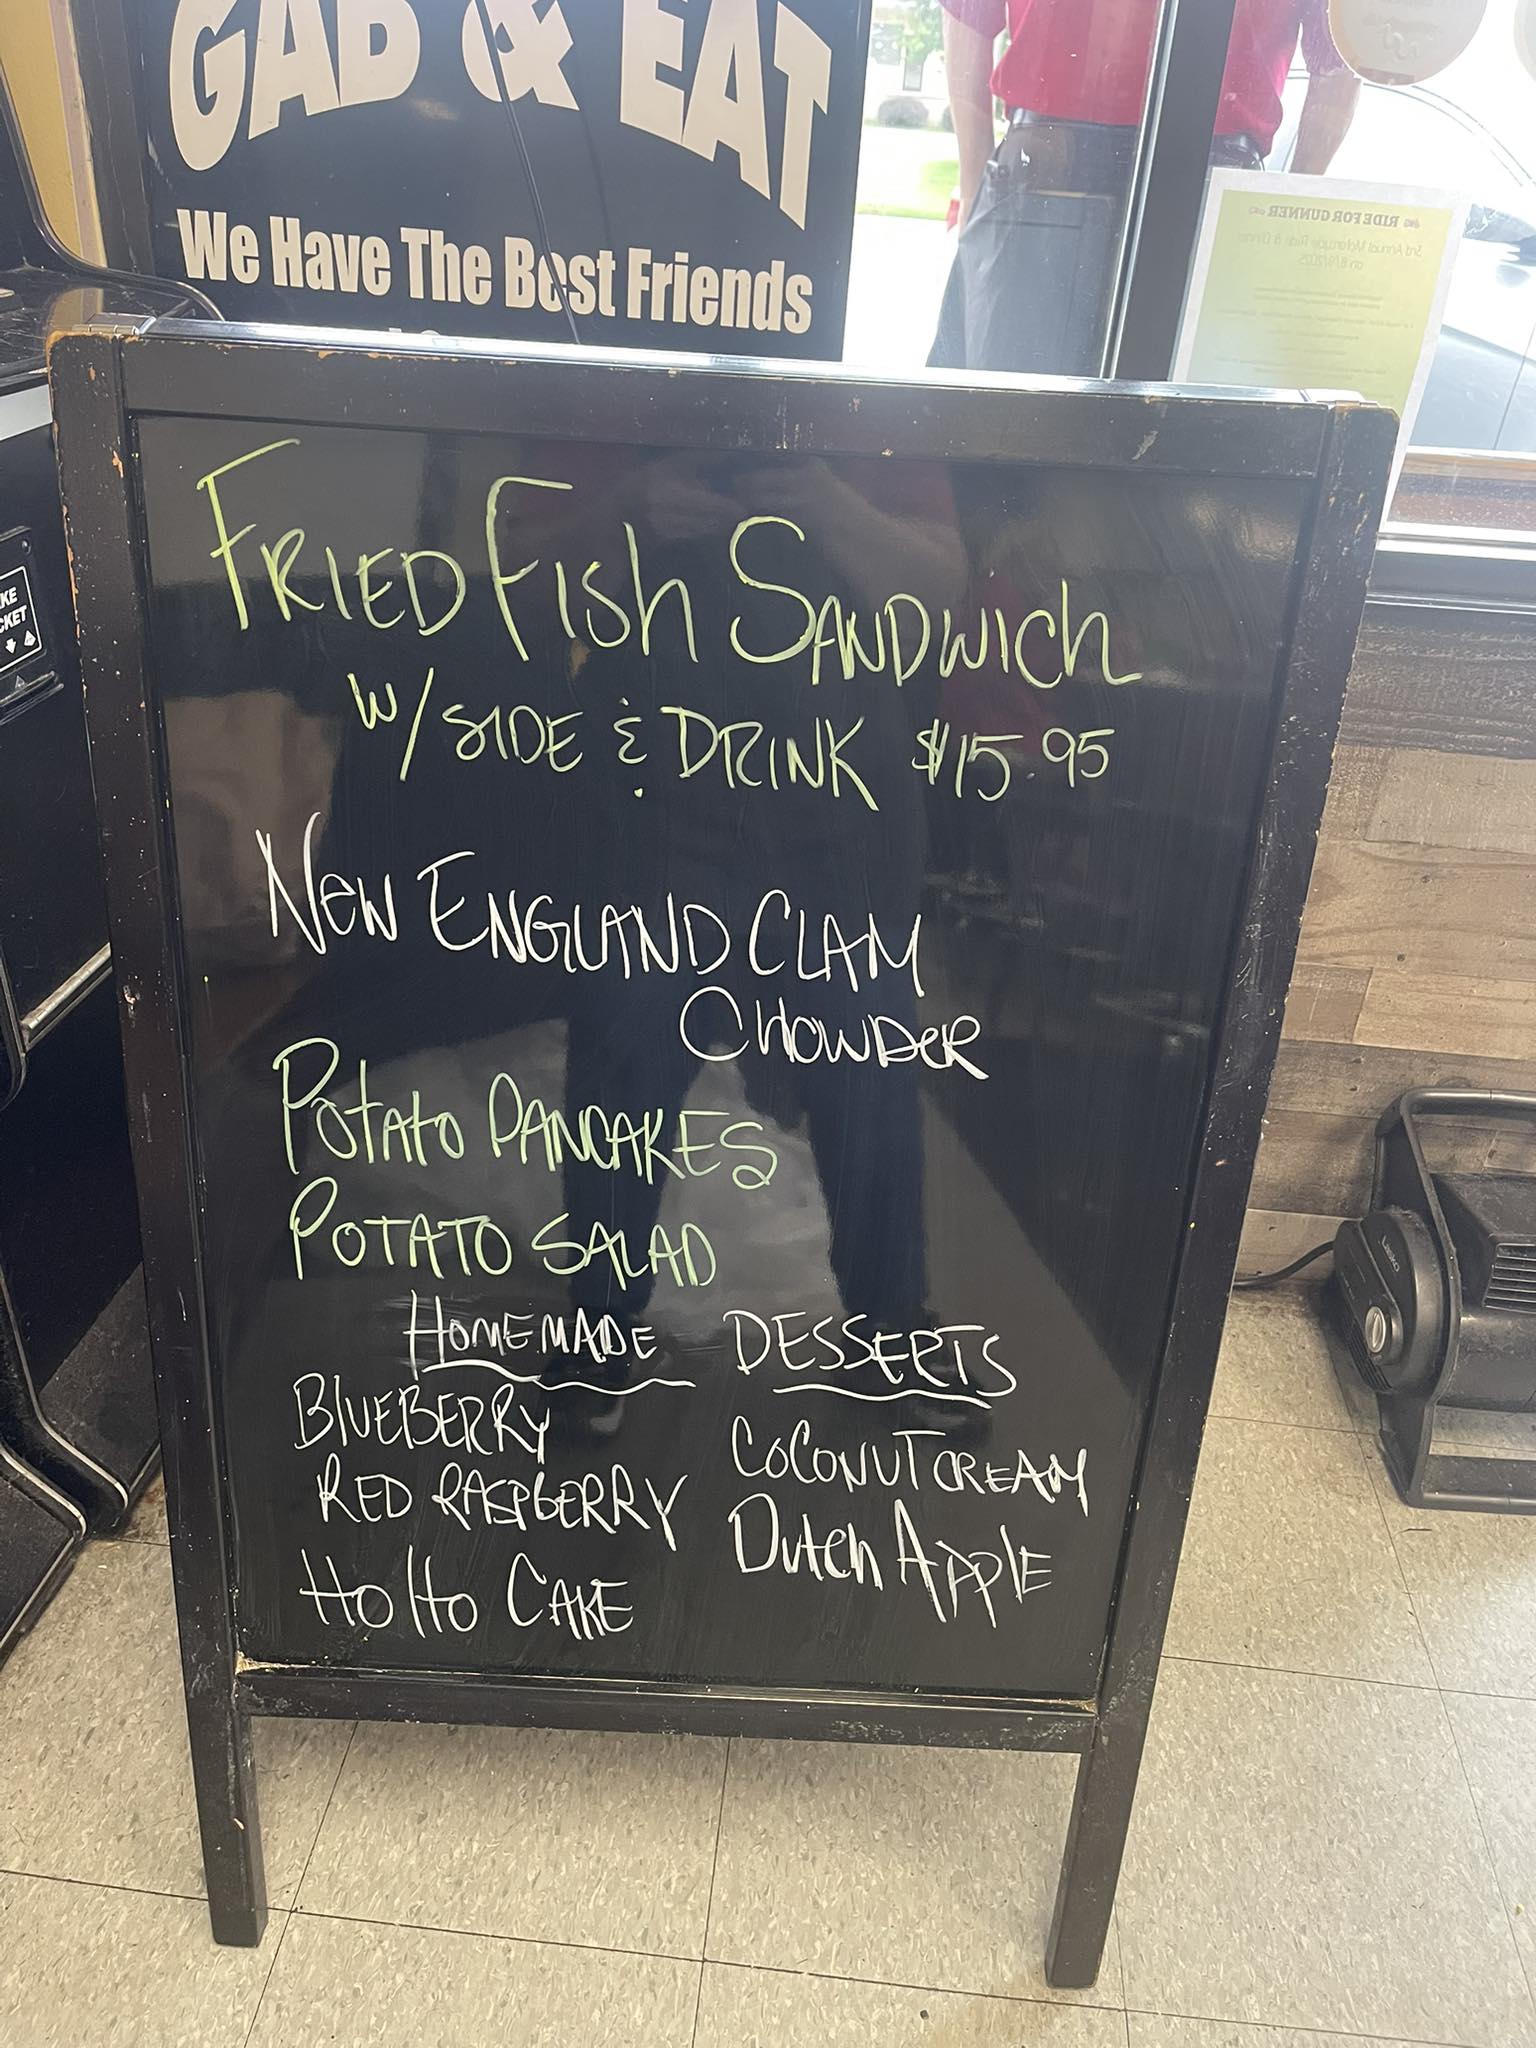 GAB & EAT
We Have The Best Friends
RIDE FOR GUNNER
3rd Annual Motorcycle Ride & Dinner
on 8/9/2025
KE
CKET
FRIED FISh SANDWICh
W/ SIDE & DRINK $15.95
NEW ENGLAND CLAM
CHOWDER
POTATO PANCAKES
POTATO SALAD
HOMEMADE DESSERTS
BLUEBERRY
RED RASPBERRY
HO HO CAKE
COCONUT CREAM
Dutch APPLE
Lasko